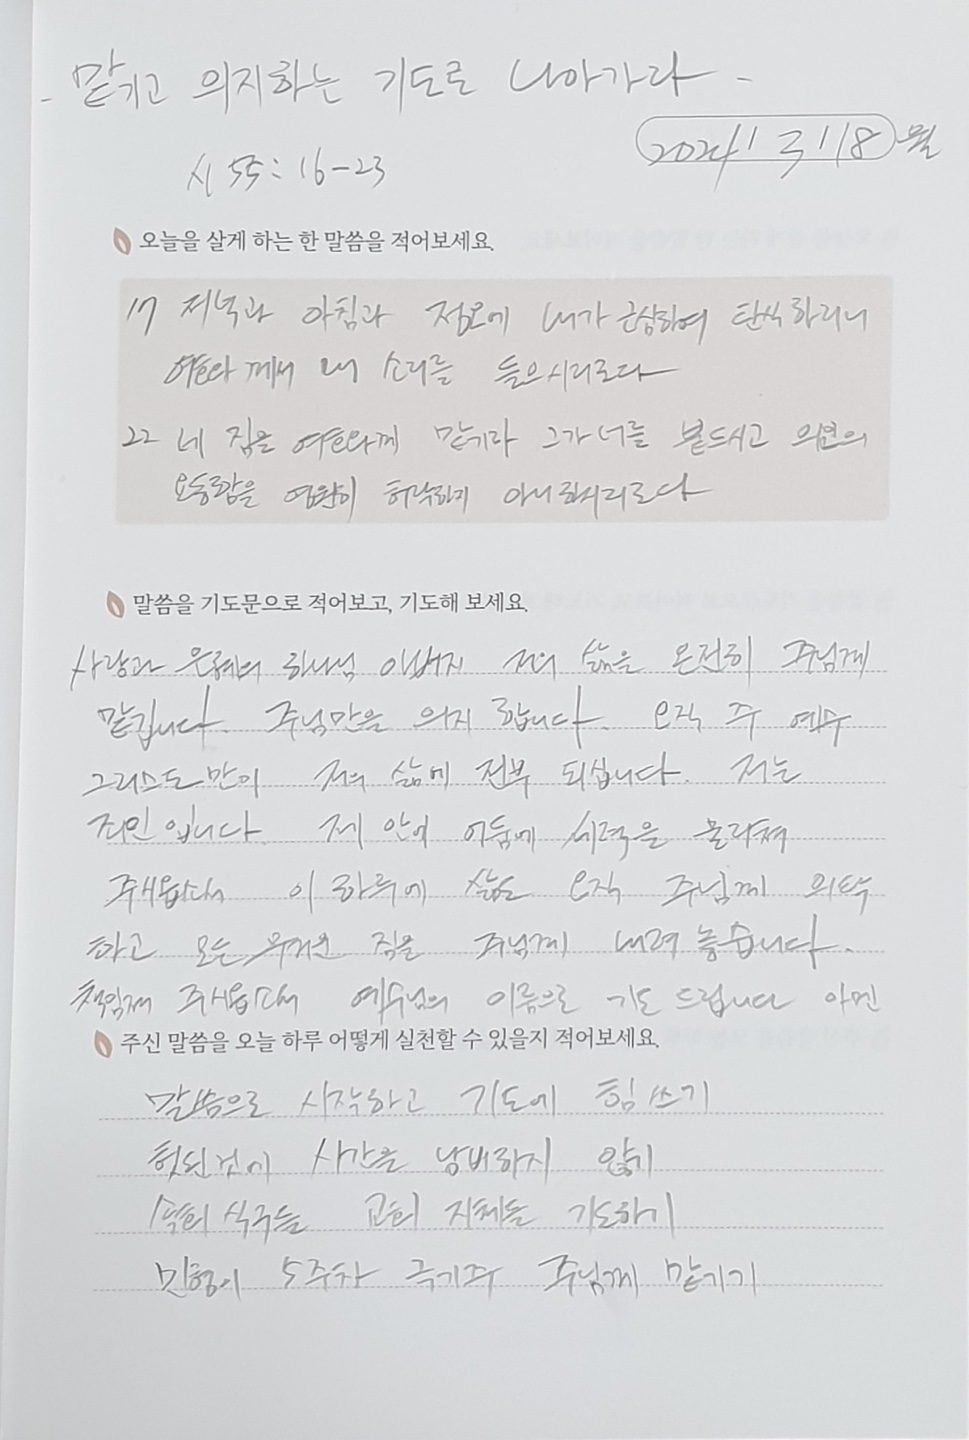 - 맡기고 의지하는 기도로 나아가라 -
2024 / 3 / 18 월
시 55: 16-23
오늘을 살게 하는 한 말씀을 적어보세요.
17 저녁과 아침과 정오에 내가 근심하여 탄식하리니
여호와께서 내 소리를 들으시리로다
22 네 짐을 여호와께 맡기라 그가 너를 붙드시고 의인의
요동함을 영원히 허락하지 아니하시리로다
말씀을 기도문으로 적어보고, 기도해 보세요.
사랑과 은혜의 하나님 아버지 저의 삶을 온전히 주님께
맡깁니다. 주님만을 의지 합니다. 오직 주 예수
그리스도만이 저의 삶에 전부 되십니다. 저는
죄인 입니다. 제 안에 어둠에 세력을 물리쳐
주시옵소서 이 하루에 삶도 오직 주님께 의탁
하고 모든 무거운 짐을 주님께 내려 놓습니다.
책임져 주시옵소서 예수님의 이름으로 기도 드립니다 아멘
주신 말씀을 오늘 하루 어떻게 실천할 수 있을지 적어보세요.
말씀으로 시작하고 기도에 힘쓰기
헛된것에 시간을 낭비하지 않기
식구들 교회 지체들 기도하기
5주차 주님께 맡기기